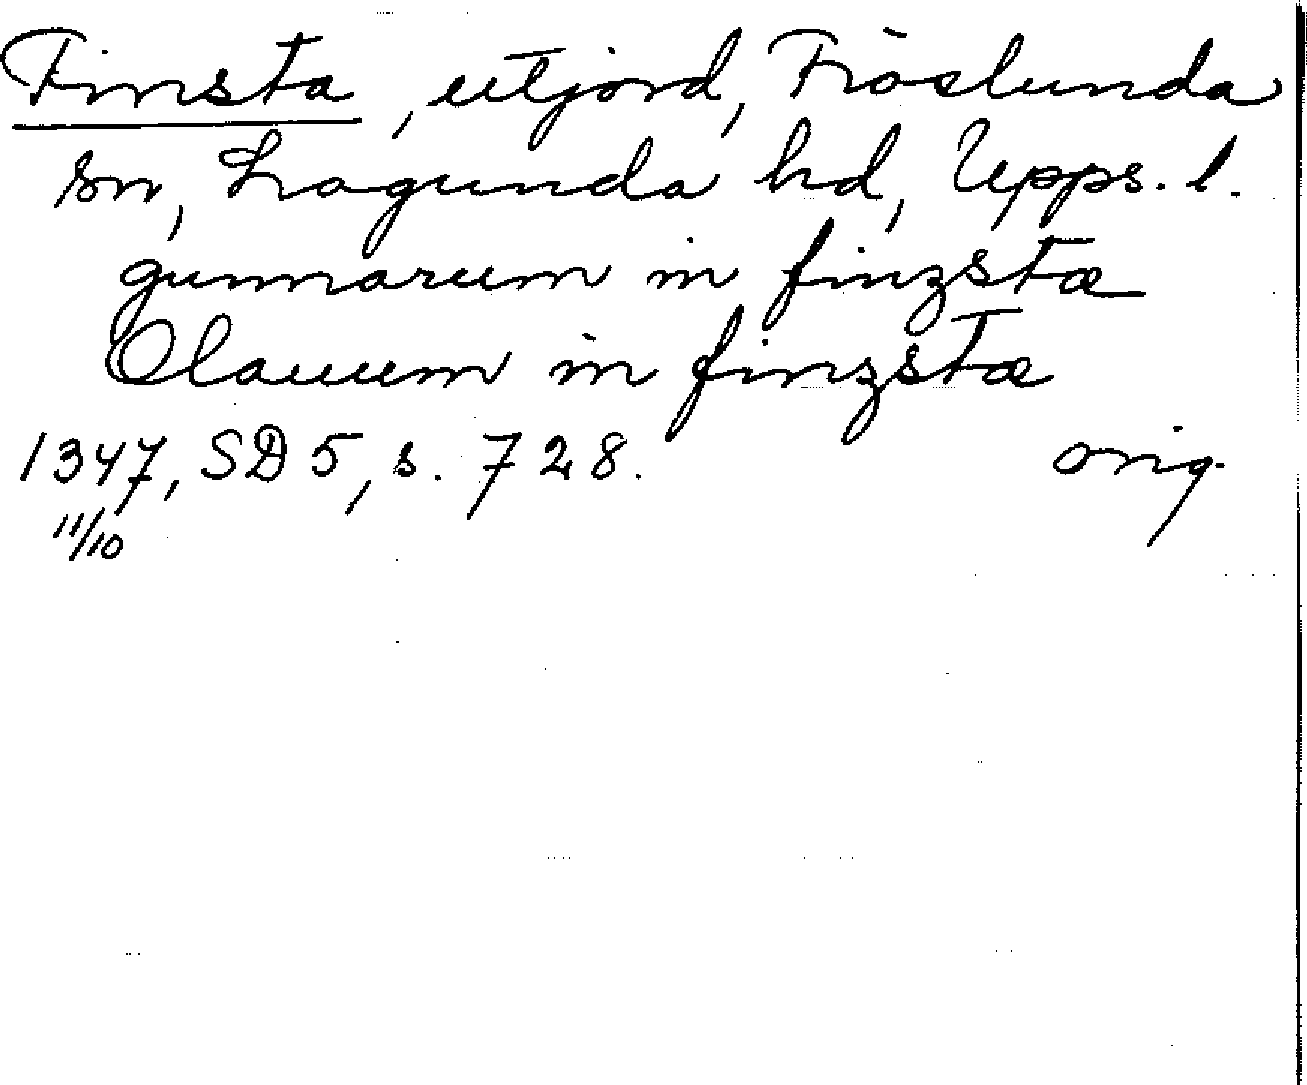 Finsta, utjord, Fröslunda
sn, Lagunda hd, Upps. l.
gunnarum in finzstæ
Olauum in finzstæ
1347, SD 5, s. 728. orig.
11/10